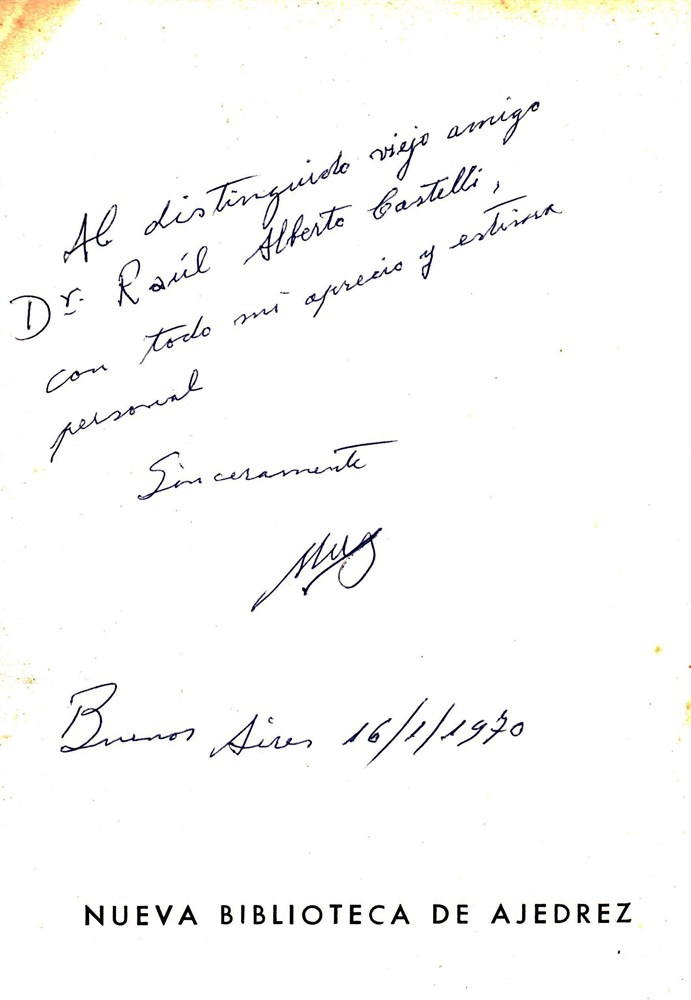 Al distinguido viejo amigo
Dr. Raúl Alberto Castelli,
con todo mi aprecio y estima
personal
Sinceramente
Buenos Aires 16/1/1970
NUEVA BIBLIOTECA DE AJEDREZ